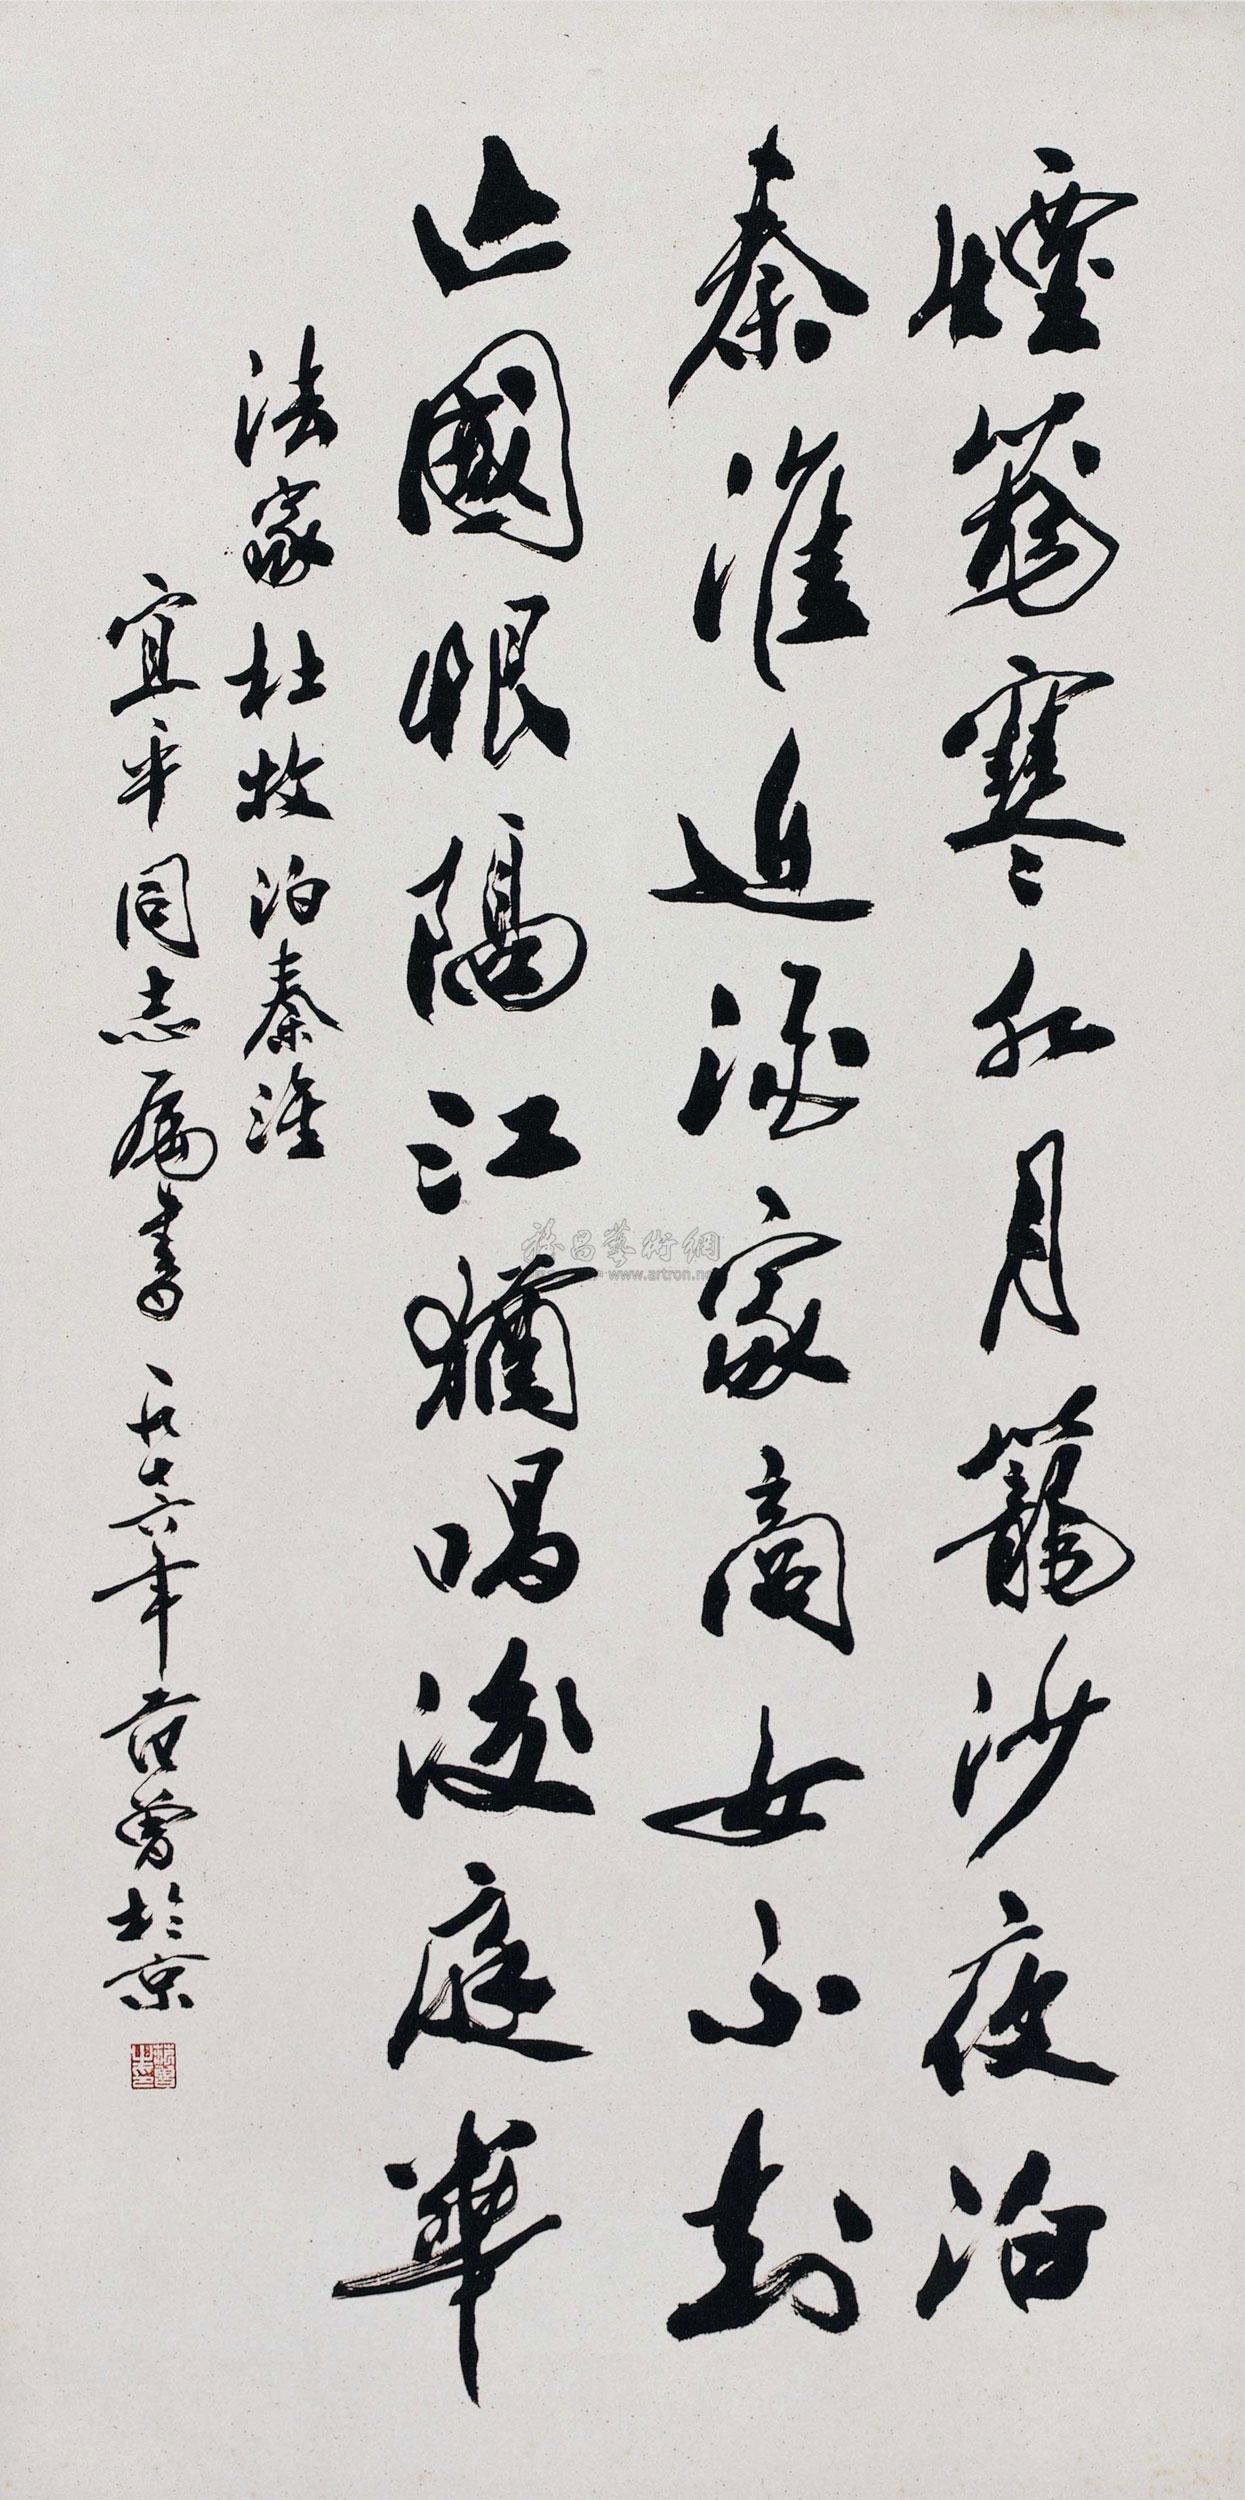 煙籠寒水月籠沙夜泊
秦淮近酒家商女不知
亡國恨隔江猶唱後庭華
法家杜牧泊秦淮
宜平同志属書 一九七六年范曾於京
雅昌藝術網
www.artron.net